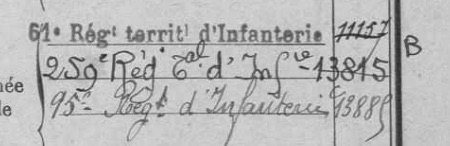 61e Régt territl d'Infanterie 11157
B
259e Rég Tal d'Infie 13815
née
95e Régt d'Infanterie 13885
le